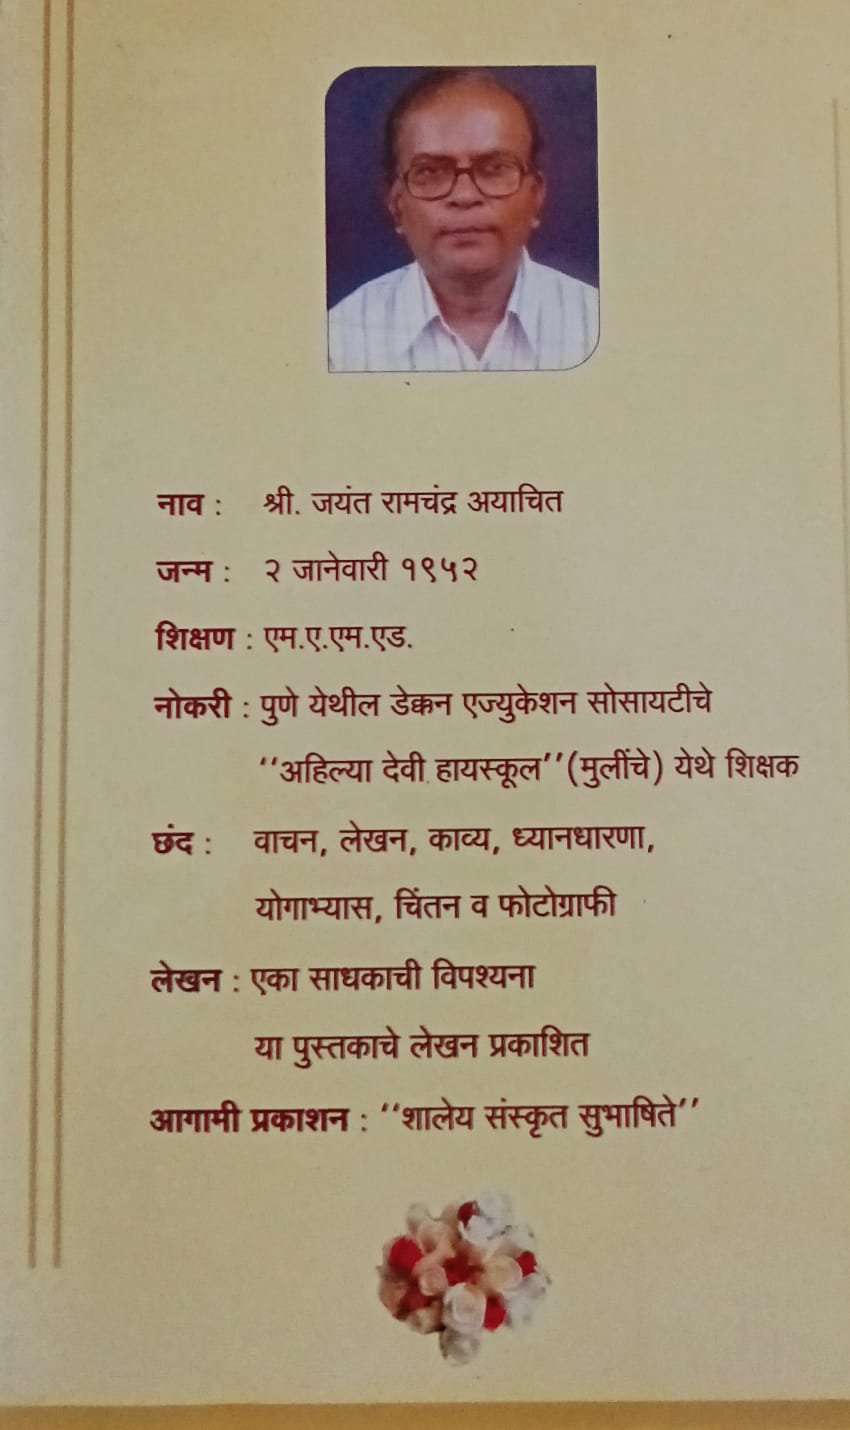 नाव : श्री. जयंत रामचंद्र अयाचित
जन्म : २ जानेवारी १९५२
शिक्षण : एम.ए.एम.एड.
नोकरी : पुणे येथील डेक्कन एज्युकेशन सोसायटीचे
‘‘अहिल्या देवी हायस्कूल’’(मुलींचे) येथे शिक्षक
छंद : वाचन, लेखन, काव्य, ध्यानधारणा,
योगाभ्यास, चिंतन व फोटोग्राफी
लेखन : एका साधकाची विपश्यना
या पुस्तकाचे लेखन प्रकाशित
आगामी प्रकाशन : ‘‘शालेय संस्कृत सुभाषिते’’